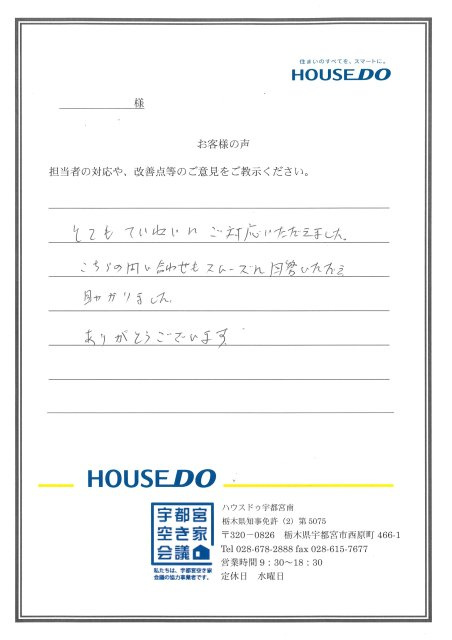 住まいのすべてを、スマートに。
HOUSEDO
様
お客様の声
担当者の対応や、改善点等のご意見をご教示ください。
とても ていねいに ご対応いただきました。
こちらの問い合わせもスムーズに回答いただき
助かりました。
ありがとうございます
HOUSEDO
宇都宮
空き家
会議
私たちは、宇都宮空き家
会議の協力事業者です。
ハウスドゥ宇都宮南
栃木県知事免許（2）第5075
〒320－0826　栃木県宇都宮市西原町 466-1
Tel 028-678-2888 fax 028-615-7677
営業時間 9：30～18：30
定休日　水曜日